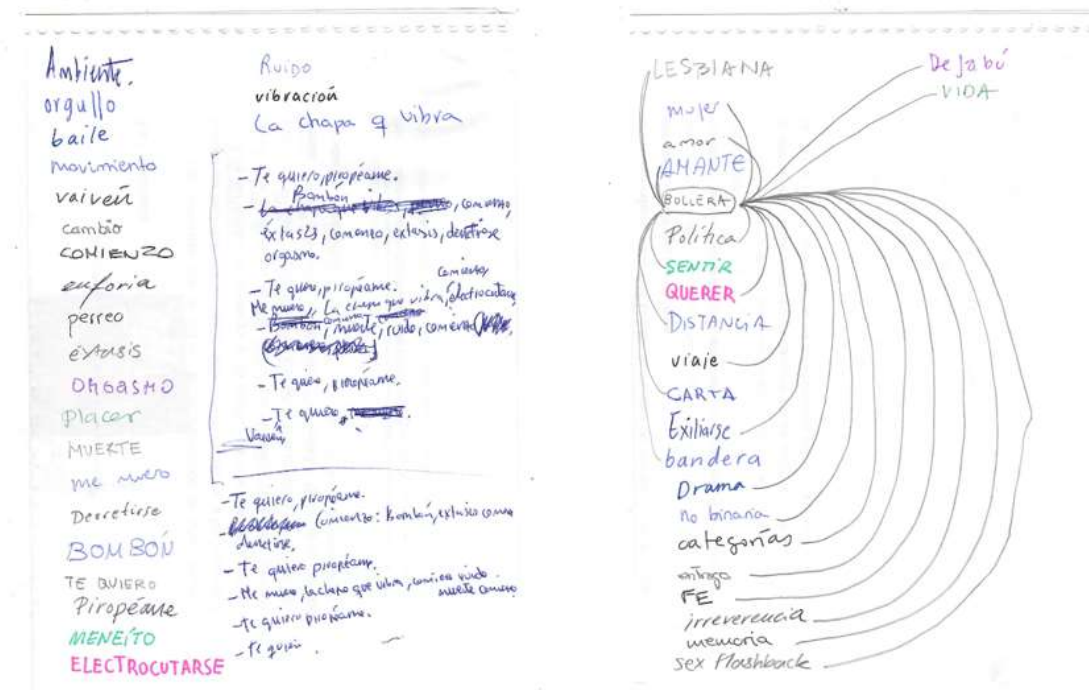 Ambiente.
orgullo
baile
movimiento
vaivén
cambio
COMIENZO
euforia
perreo
éxtasis
ORGASMO
placer
MUERTE
me muero
Derretirse
BOMBÓN
TE QUIERO
Piropéame
MENEÍTO
ELECTROCUTARSE
Ruido
vibración
La chapa q vibra
- Te quiero, piropéame.
Bombón
- La chapa que vibra, comienzo,
éxtasis, comienzo, extasis, derretirse
orgasmo.
Comienzo
- Te quiero, piropéame.
Me muero, La chapa que vibra, electrocutarse
- Bombón, muerte, ruido, comienzo
- Te quiero, piropéame.
- Te quiero,
Vaivén
- Te quiero, piropéame.
- Comienzo: Bombón, extasis
derretirse.
- Te quiero piropéame.
- Me muero, la chapa que vibra, ruido
muerte comienzo
- te quiero piropéame.
- te quiero.
LESBIANA
mujer
amor
AMANTE
BOLLERA
Política
SENTIR
QUERER
DISTANCIA
viaje
CARTA
Exiliarse
bandera
Drama
no binaria
categorías
FE
irreverencia
memoria
sex flashback
De Ja bú
VIDA